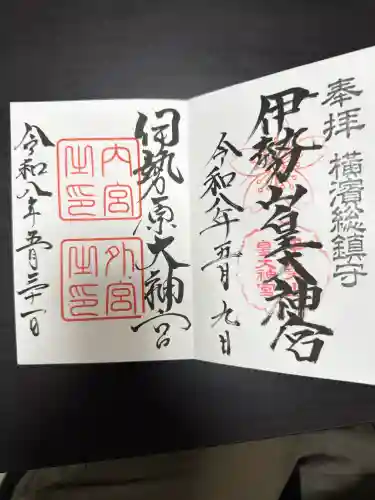 奉拝
横濱総鎮守
伊勢山皇大神宮
皇大神宮
令和八年五月九日
伊勢原大神宮
内宮之印
外宮之印
令和八年五月三十一日